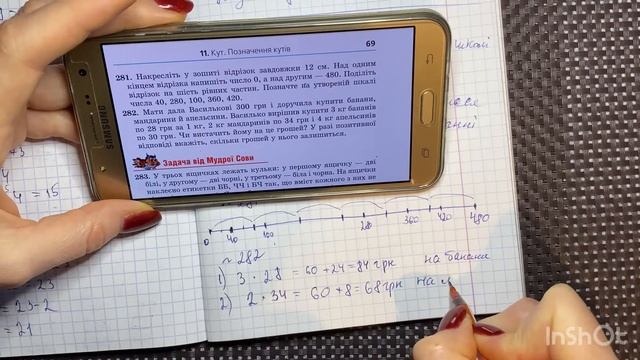 11. Кут. Позначення кутів 69
281. Накресліть у зошиті відрізок завдовжки 12 см. Над одним
кінцем відрізка напишіть число 0, а над другим — 480. Поділіть
відрізок на шість рівних частин. Позначте на утвореній шкалі
числа 40, 280, 100, 360, 420.
282. Мати дала Василькові 300 грн і доручила купити банани,
мандарини й апельсини. Василько вирішив купити 3 кг бананів
по 28 грн за 1 кг, 2 кг мандаринів по 34 грн і 4 кг апельсинів
по 30 грн. Чи вистачить йому на це грошей? У разі позитивної
відповіді вкажіть, скільки грошей у нього залишиться.
Задача від Мудрої Сови
283. У трьох ящичках лежать кульки: у першому ящичку — дві
білі, у другому — дві чорні, у третьому — біла і чорна. На ящички
наклеєно етикетки ББ, ЧЧ і БЧ так, що вміст кожного з них не
SAMSUNG
шкалі
4 = 15
0 40 100 280 360 420 480
~ 282
1) 3 · 28 = 60 + 24 = 84 грн на банани
2) 2 · 34 = 60 + 8 = 68 грн на м
= 23 - 2
= 21
InShOt